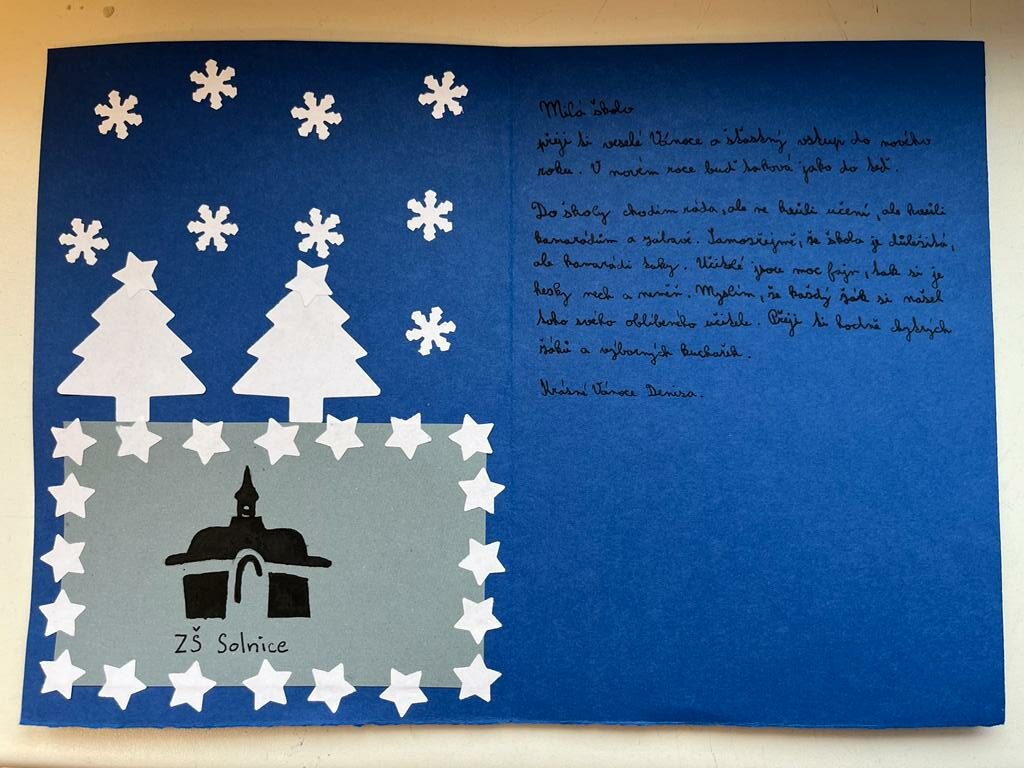 Milá školo
přeji ti veselé Vánoce a šťastný vstup do nového
roku. V novém roce buď taková jako do teď.
Do školy chodím ráda, ale ne kvůli učení, ale kvůli
kamarádům a zábavě. Samozřejmě, že škola je důležitá,
ale kamarádi taky. Učitelé jsou moc fajn, tak si je
hezky nech a neměň. Myslím, že každý žák si našel
toho svého oblíbeného učitele. Přeji ti hodně chytrých
žáků a výborných kuchařek.
Krásné Vánoce Denisa.
ZŠ Solnice